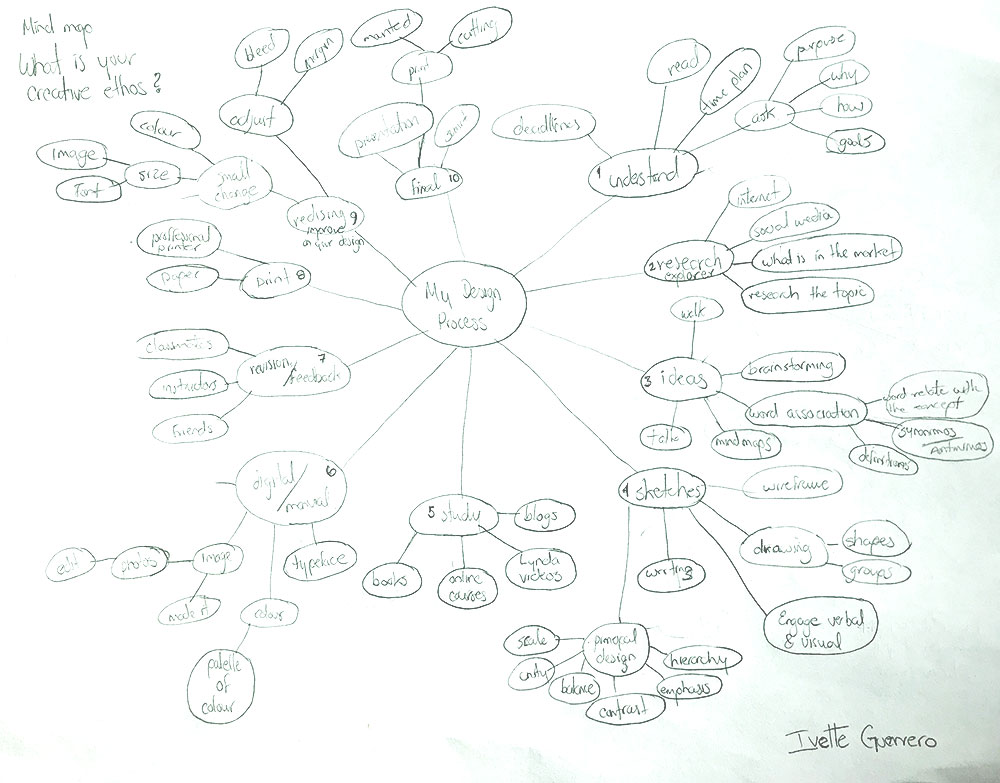 Mind map
What is your
creative ethos?
My Design
Process
1 undestand
deadlines
read
time plan
ask
purpose
why
how
goals
2 research
explorer
internet
social media
what is in the market
research the topic
3 ideas
walk
brainstorming
word association
word relate with
the concept
synonimos
Antinimos
definitions
mindmaps
talk
4 sketches
wireframe
drawing
shapes
groups
Engage verbal
& visual
writing
principal
design
scale
unity
balance
contrast
emphasis
hierarchy
5 study
blogs
Lynda
videos
online
courses
books
6
digital/
manual
typeface
image
photos
edit
make it
colour
palette
of
colour
7
revision/
feedback
classmates
instructors
friends
print 8
proffesional
printer
paper
redising 9
improve
on your design
small
change
colour
size
image
Font
adjust
bleed
margin
Final 10
presentation
print
mounted
cutting
Ivette Guerrero